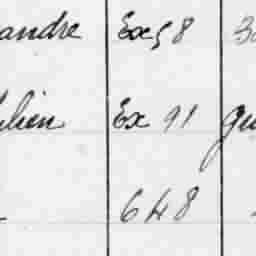 andre Ex 58 3
lien Ex 91 gu
648